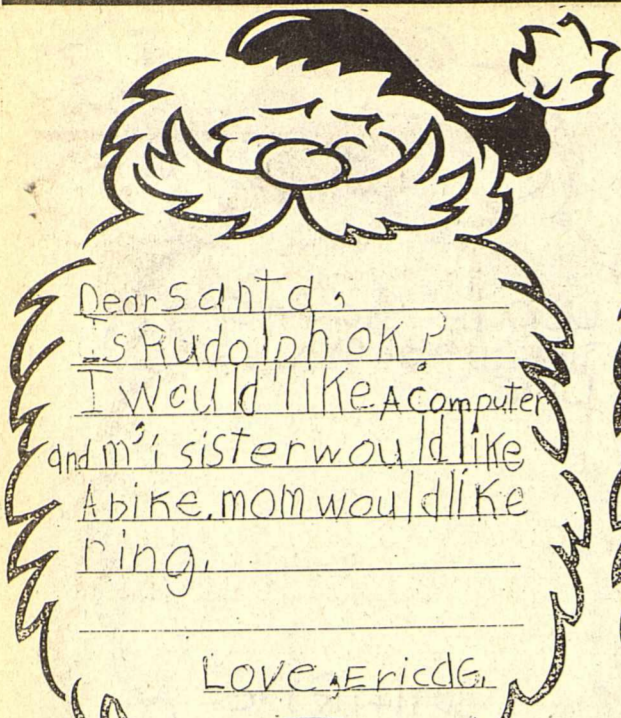 Dear santa,
Is Rudolph ok?
I would like A computer
and m'i sister would like
A bike. mom would like
ring.
Love, Ericde.